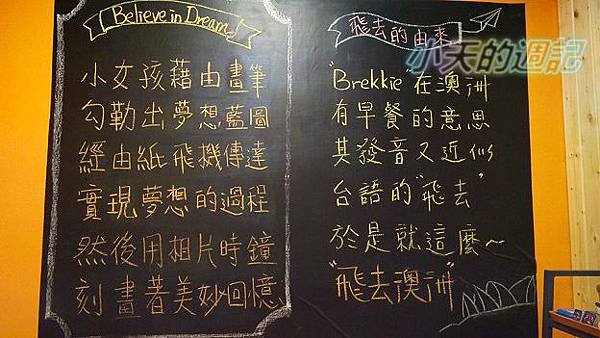 Believe in Dream~!
小女孩藉由畫筆
勾勒出夢想藍圖
經由紙飛機傳達
實現夢想的過程
然後用相片時鐘
刻畫著美妙回憶
飛去的由來
小天的週記
"Brekkie 在澳洲
有早餐的意思
其發音又近似
台語的"飛去"
於是就這麼~
"飛去澳洲"